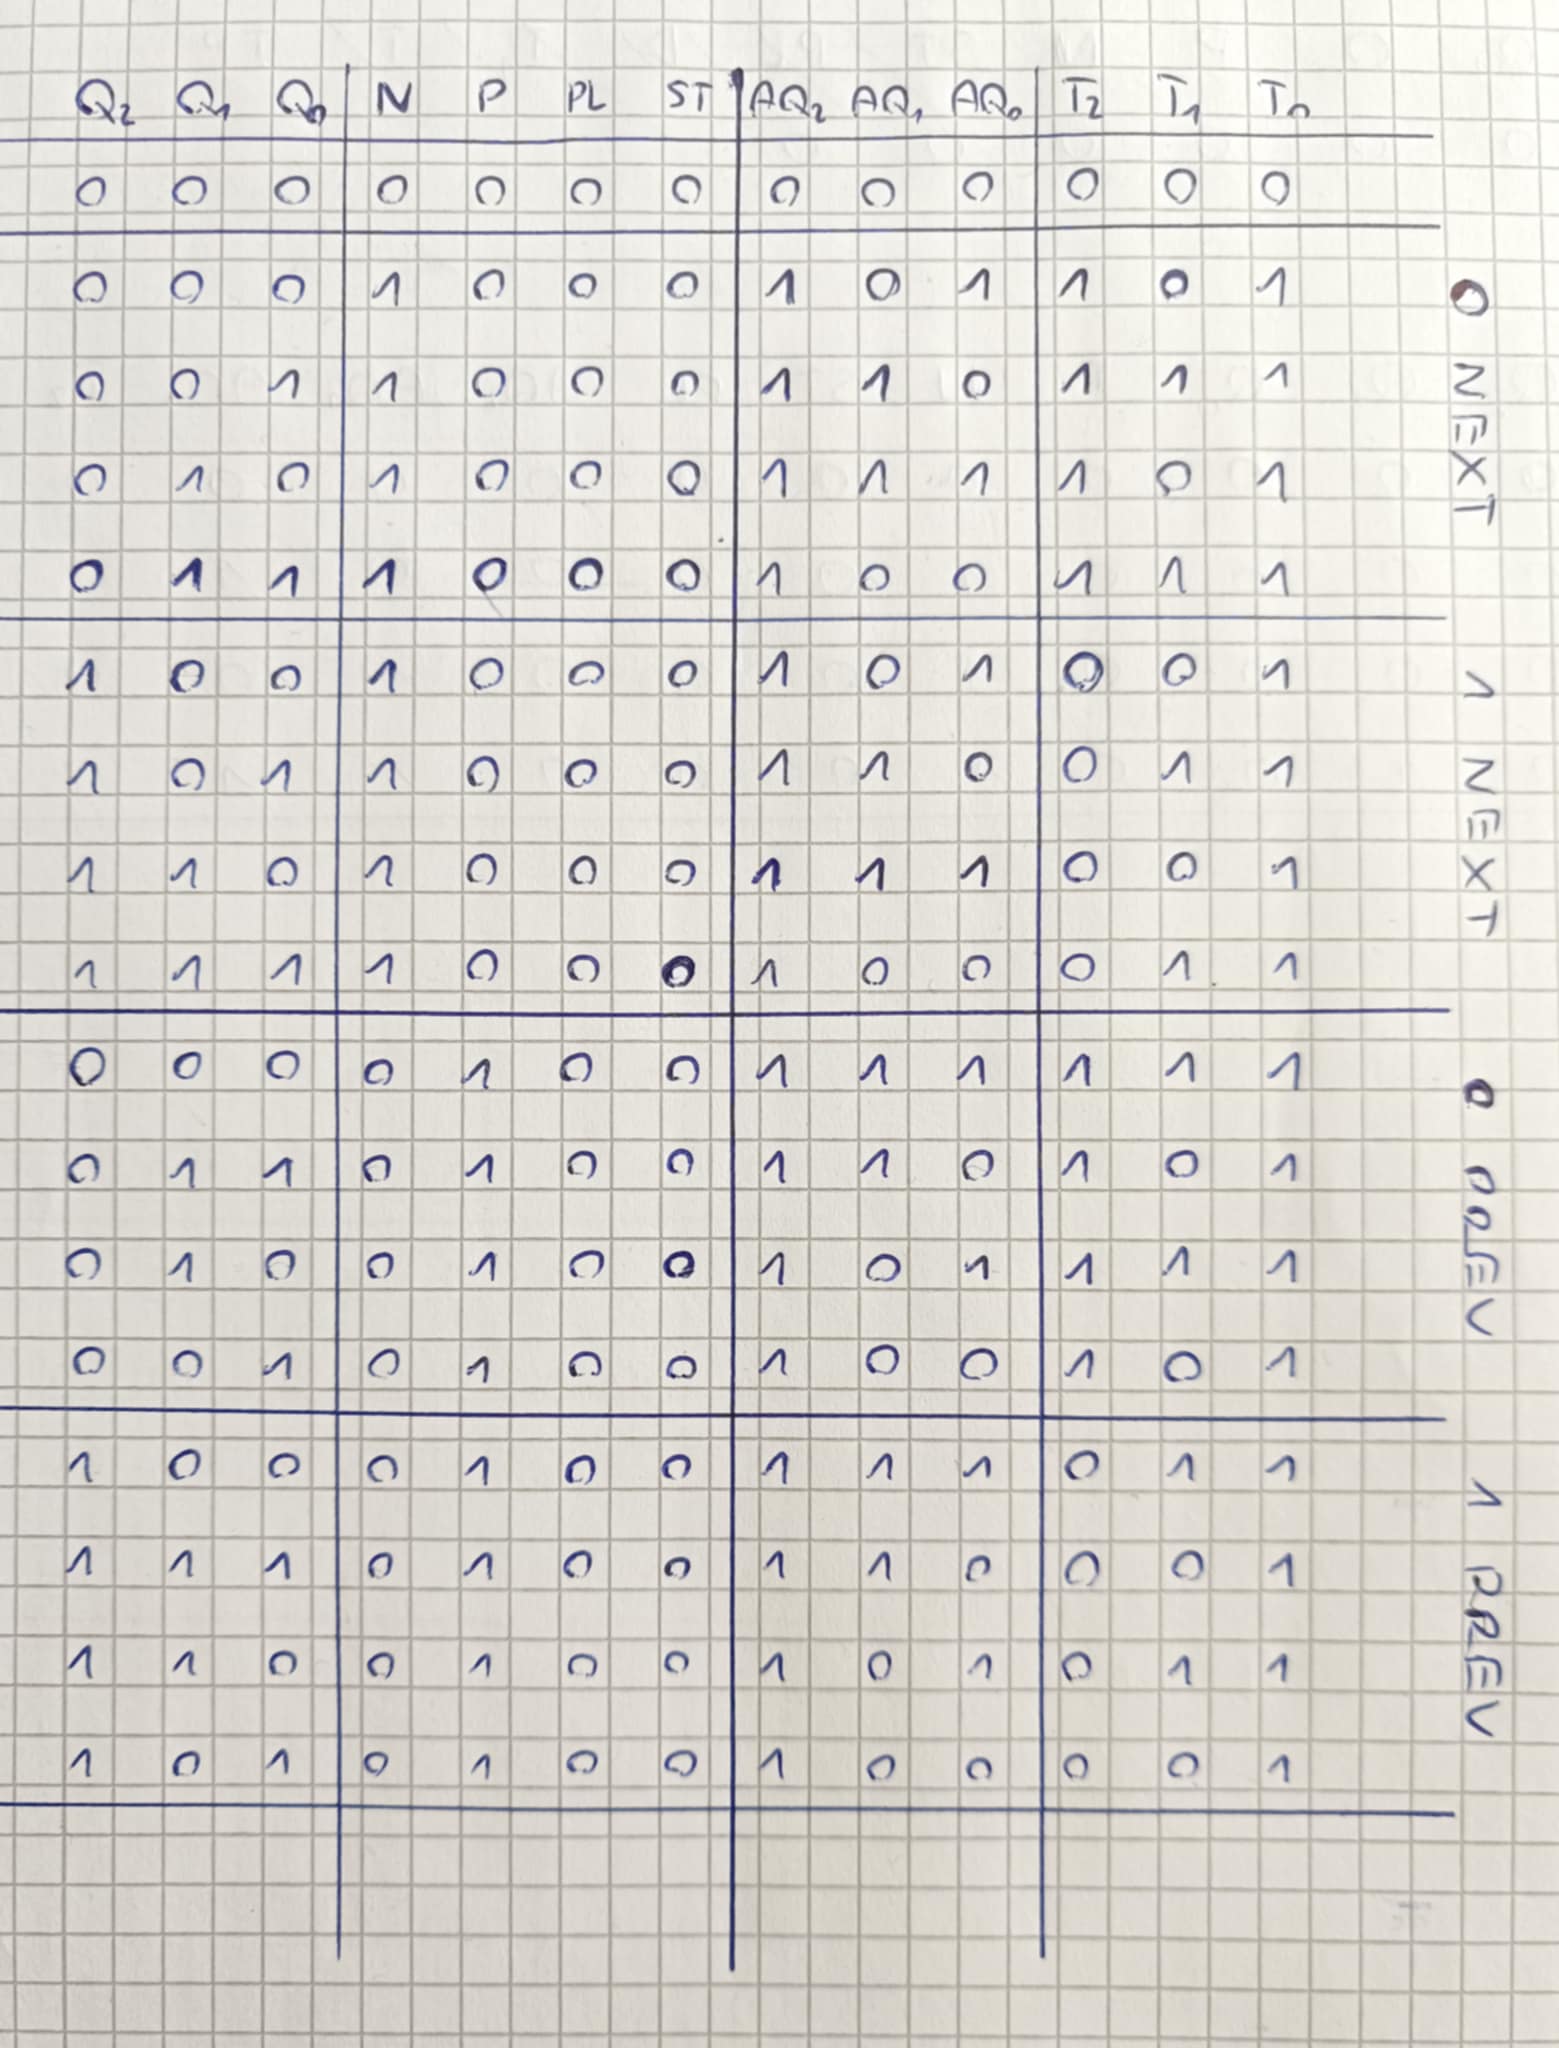 Q₂ Q₁ Q₀ N P PL ST AQ₂ AQ₁ AQ₀ T₂ T₁ T₀
0 0 0 0 0 0 0 0 0 0 0 0 0
0 0 0 1 0 0 0 1 0 1 1 0 1
0 0 1 1 0 0 0 1 1 0 1 1 1
0 1 0 1 0 0 0 1 1 1 1 0 1
0 1 1 1 0 0 0 1 0 0 1 1 1
0 NEXT
1 0 0 1 0 0 0 1 0 1 0 0 1
1 0 1 1 0 0 0 1 1 0 0 1 1
1 1 0 1 0 0 0 1 1 1 0 0 1
1 1 1 1 0 0 0 1 0 0 0 1 1
1 NEXT
0 0 0 0 1 0 0 1 1 1 1 1 1
0 1 1 0 1 0 0 1 1 0 1 0 1
0 1 0 0 1 0 0 1 0 1 1 1 1
0 0 1 0 1 0 0 1 0 0 1 0 1
0 PREV
1 0 0 0 1 0 0 1 1 1 0 1 1
1 1 1 0 1 0 0 1 1 0 0 0 1
1 1 0 0 1 0 0 1 0 1 0 1 1
1 0 1 0 1 0 0 1 0 0 0 0 1
1 PREV